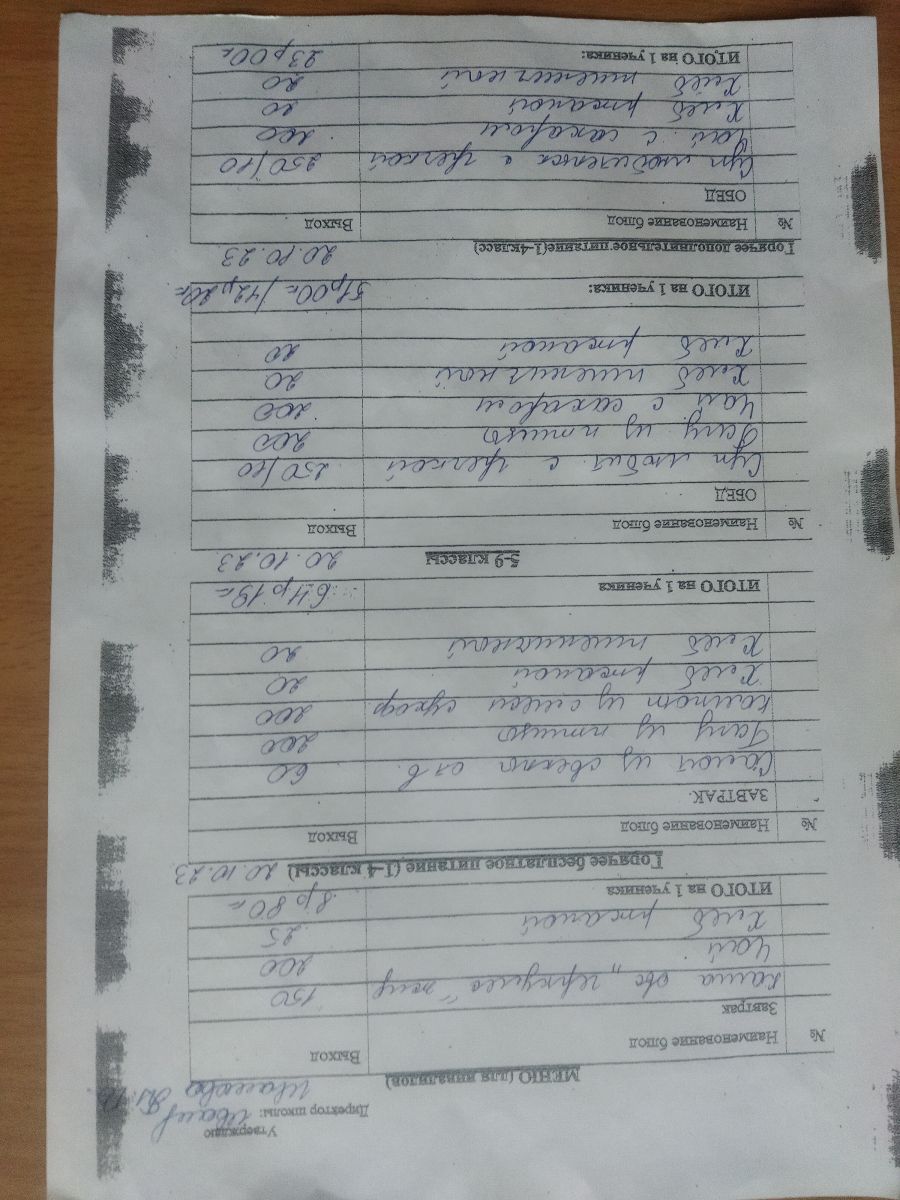 Утверждаю
Директор школы:
МЕНЮ (для инвалидов)
№ Наименование блюд Выход
Завтрак
Каша овс „геркулес" жид 150
Чай 200
Хлеб ржаной 25
ИТОГО на 1 ученика 8р 80к
Горячее бесплатное питание (1-4 классы) 20.10.23
№ Наименование блюд Выход
ЗАВТРАК.
Салат из свеклы 60
Рагу из птицы 200
Компот из смеси сухоф 200
Хлеб ржаной 20
Хлеб пшеничной 20
ИТОГО на 1 ученика 64р 19к
5-9 классы 20.10.23
№ Наименование блюд Выход
ОБЕД
Суп любит с гречкой 250/10
Рагу из птицы 200
Чай с сахаром 200
Хлеб пшеничной 20
Хлеб ржаной 20
ИТОГО на 1 ученика: 51р00к/42р20к
Горячее дополнительное питание(1-4класс) 20.10.23
№ Наименование блюд Выход
ОБЕД
Суп с гречкой 250/10
Чай с сахаром 200
Хлеб ржаной 20
Хлеб пшеничной 20
ИТОГО на 1 ученика: 23р00к